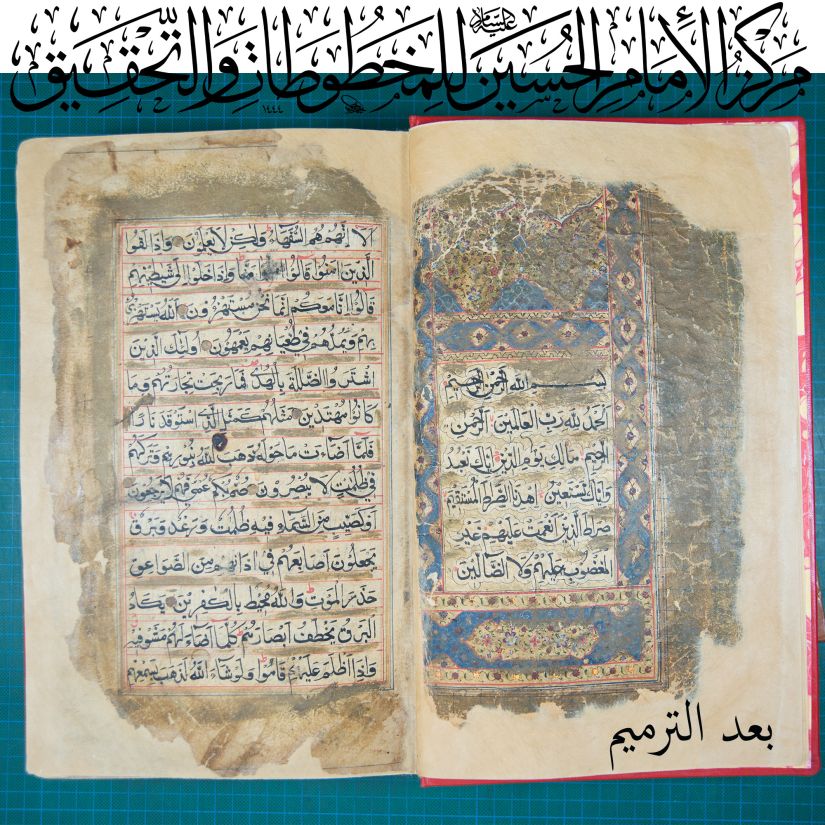 مركز الإمام الحسين عليه السلام للمخطوطات والتحقيق
١٤٤٤
بسم الله الرحمن الرحيم
الحمد لله رب العالمين الرحمن
الرحيم مالك يوم الدين اياك نعبد
واياك نستعين اهدنا الصراط المستقيم
صراط الذين انعمت عليهم غير
المغضوب عليهم ولا الضالين
الا انهم هم السفهاء ولكن لا يعلمون واذا لقوا
الذين امنوا قالوا امنا واذا خلوا الى شيطينهم
قالوا انا معكم انما نحن مستهزؤن الله يستهزئ
بهم ويمدهم في طغيانهم يعمهون اولئك الذين
اشتروا الضلالة بالهدى فما ربحت تجارتهم وما
كانوا مهتدين مثلهم كمثل الذي استوقد نارا
فلما اضاءت ما حوله ذهب الله بنورهم وتركهم
في ظلمات لا يبصرون صم بكم عمي فهم لا يرجعون
او كصيب من السماء فيه ظلمت ورعد وبرق
يجعلون اصابعهم في اذانهم من الصواعق
حذر الموت والله محيط بالكفرين يكاد
البرق يخطف ابصارهم كلما اضاء لهم مشوا فيه
واذا اظلم عليهم قاموا ولو شاء الله لذهب بسمعهم
بعد الترميم